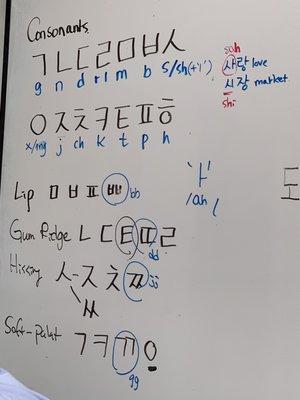 Consonants
ㄱㄴㄷㄹㅁㅂㅅ
g n d r/l m b s/sh(+'i')
sah
사랑 love
시장 market
shi
ㅇㅈㅊㅋㅌㅍㅎ
x/ng j ch k t p h
'ㅏ'
/ah/
Lip ㅁㅂㅍㅃ bb
Gum Ridge ㄴㄷㅌㄸㄹ
dd
Hissing ㅅ-ㅈㅊㅉ jj
ㅆ
Soft-palat ㄱㅋㄲㅇ
gg